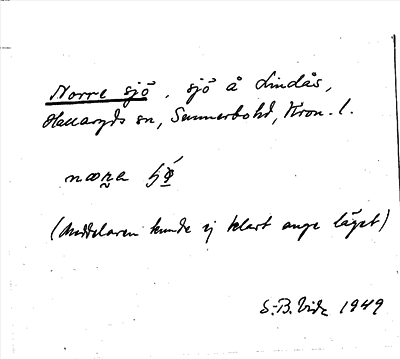 Norre sjö, sjö å Lindås,
Hallaryds sn, Sunnerbohd, Kron. l.
(Meddelaren kunde ej klart ange läget)
S-B. Vide 1949